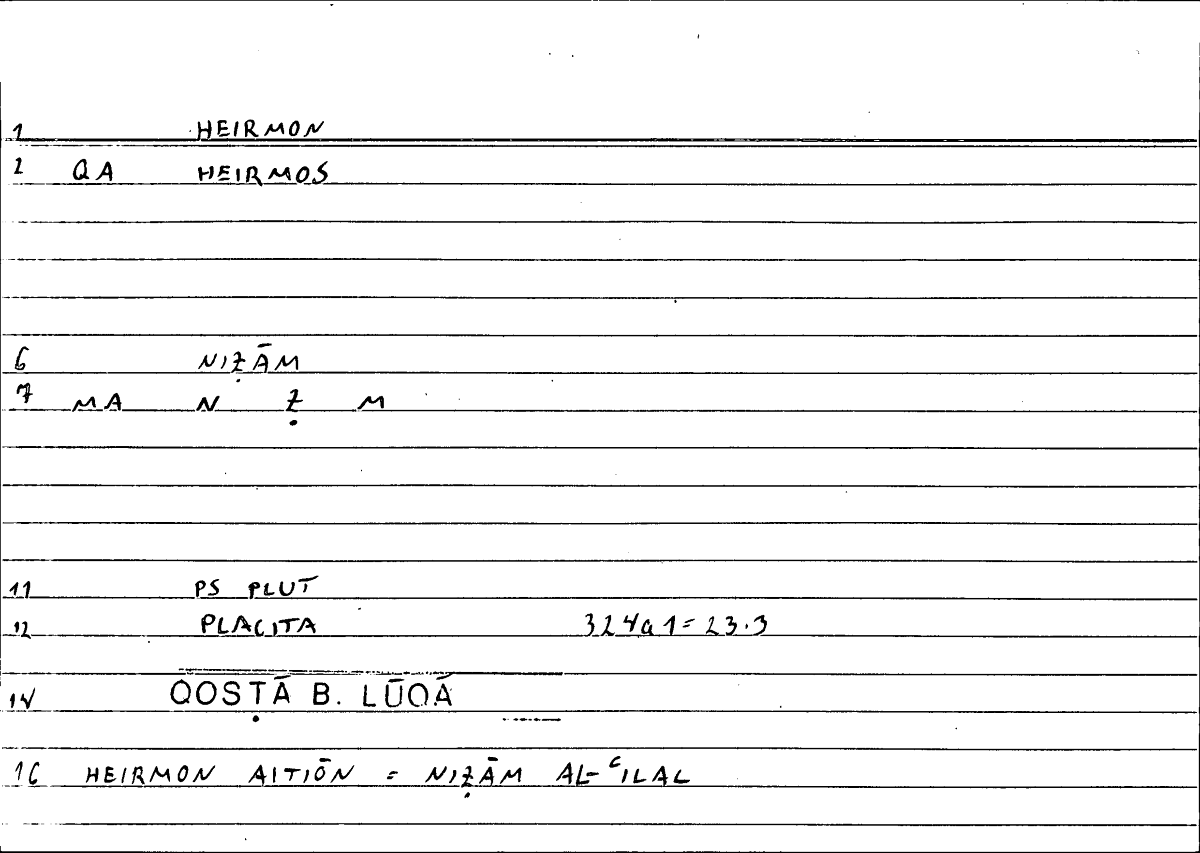 1 HEIRMON
2 QA HEIRMOS
6 NIẒĀM
7 MA N Ẓ M
11 PS PLUT
12 PLACITA 324a1=23.3
14 QOSṬĀ B. LŪQĀ
16 HEIRMON AITIŌN = NIẒĀM AL-ʿILAL